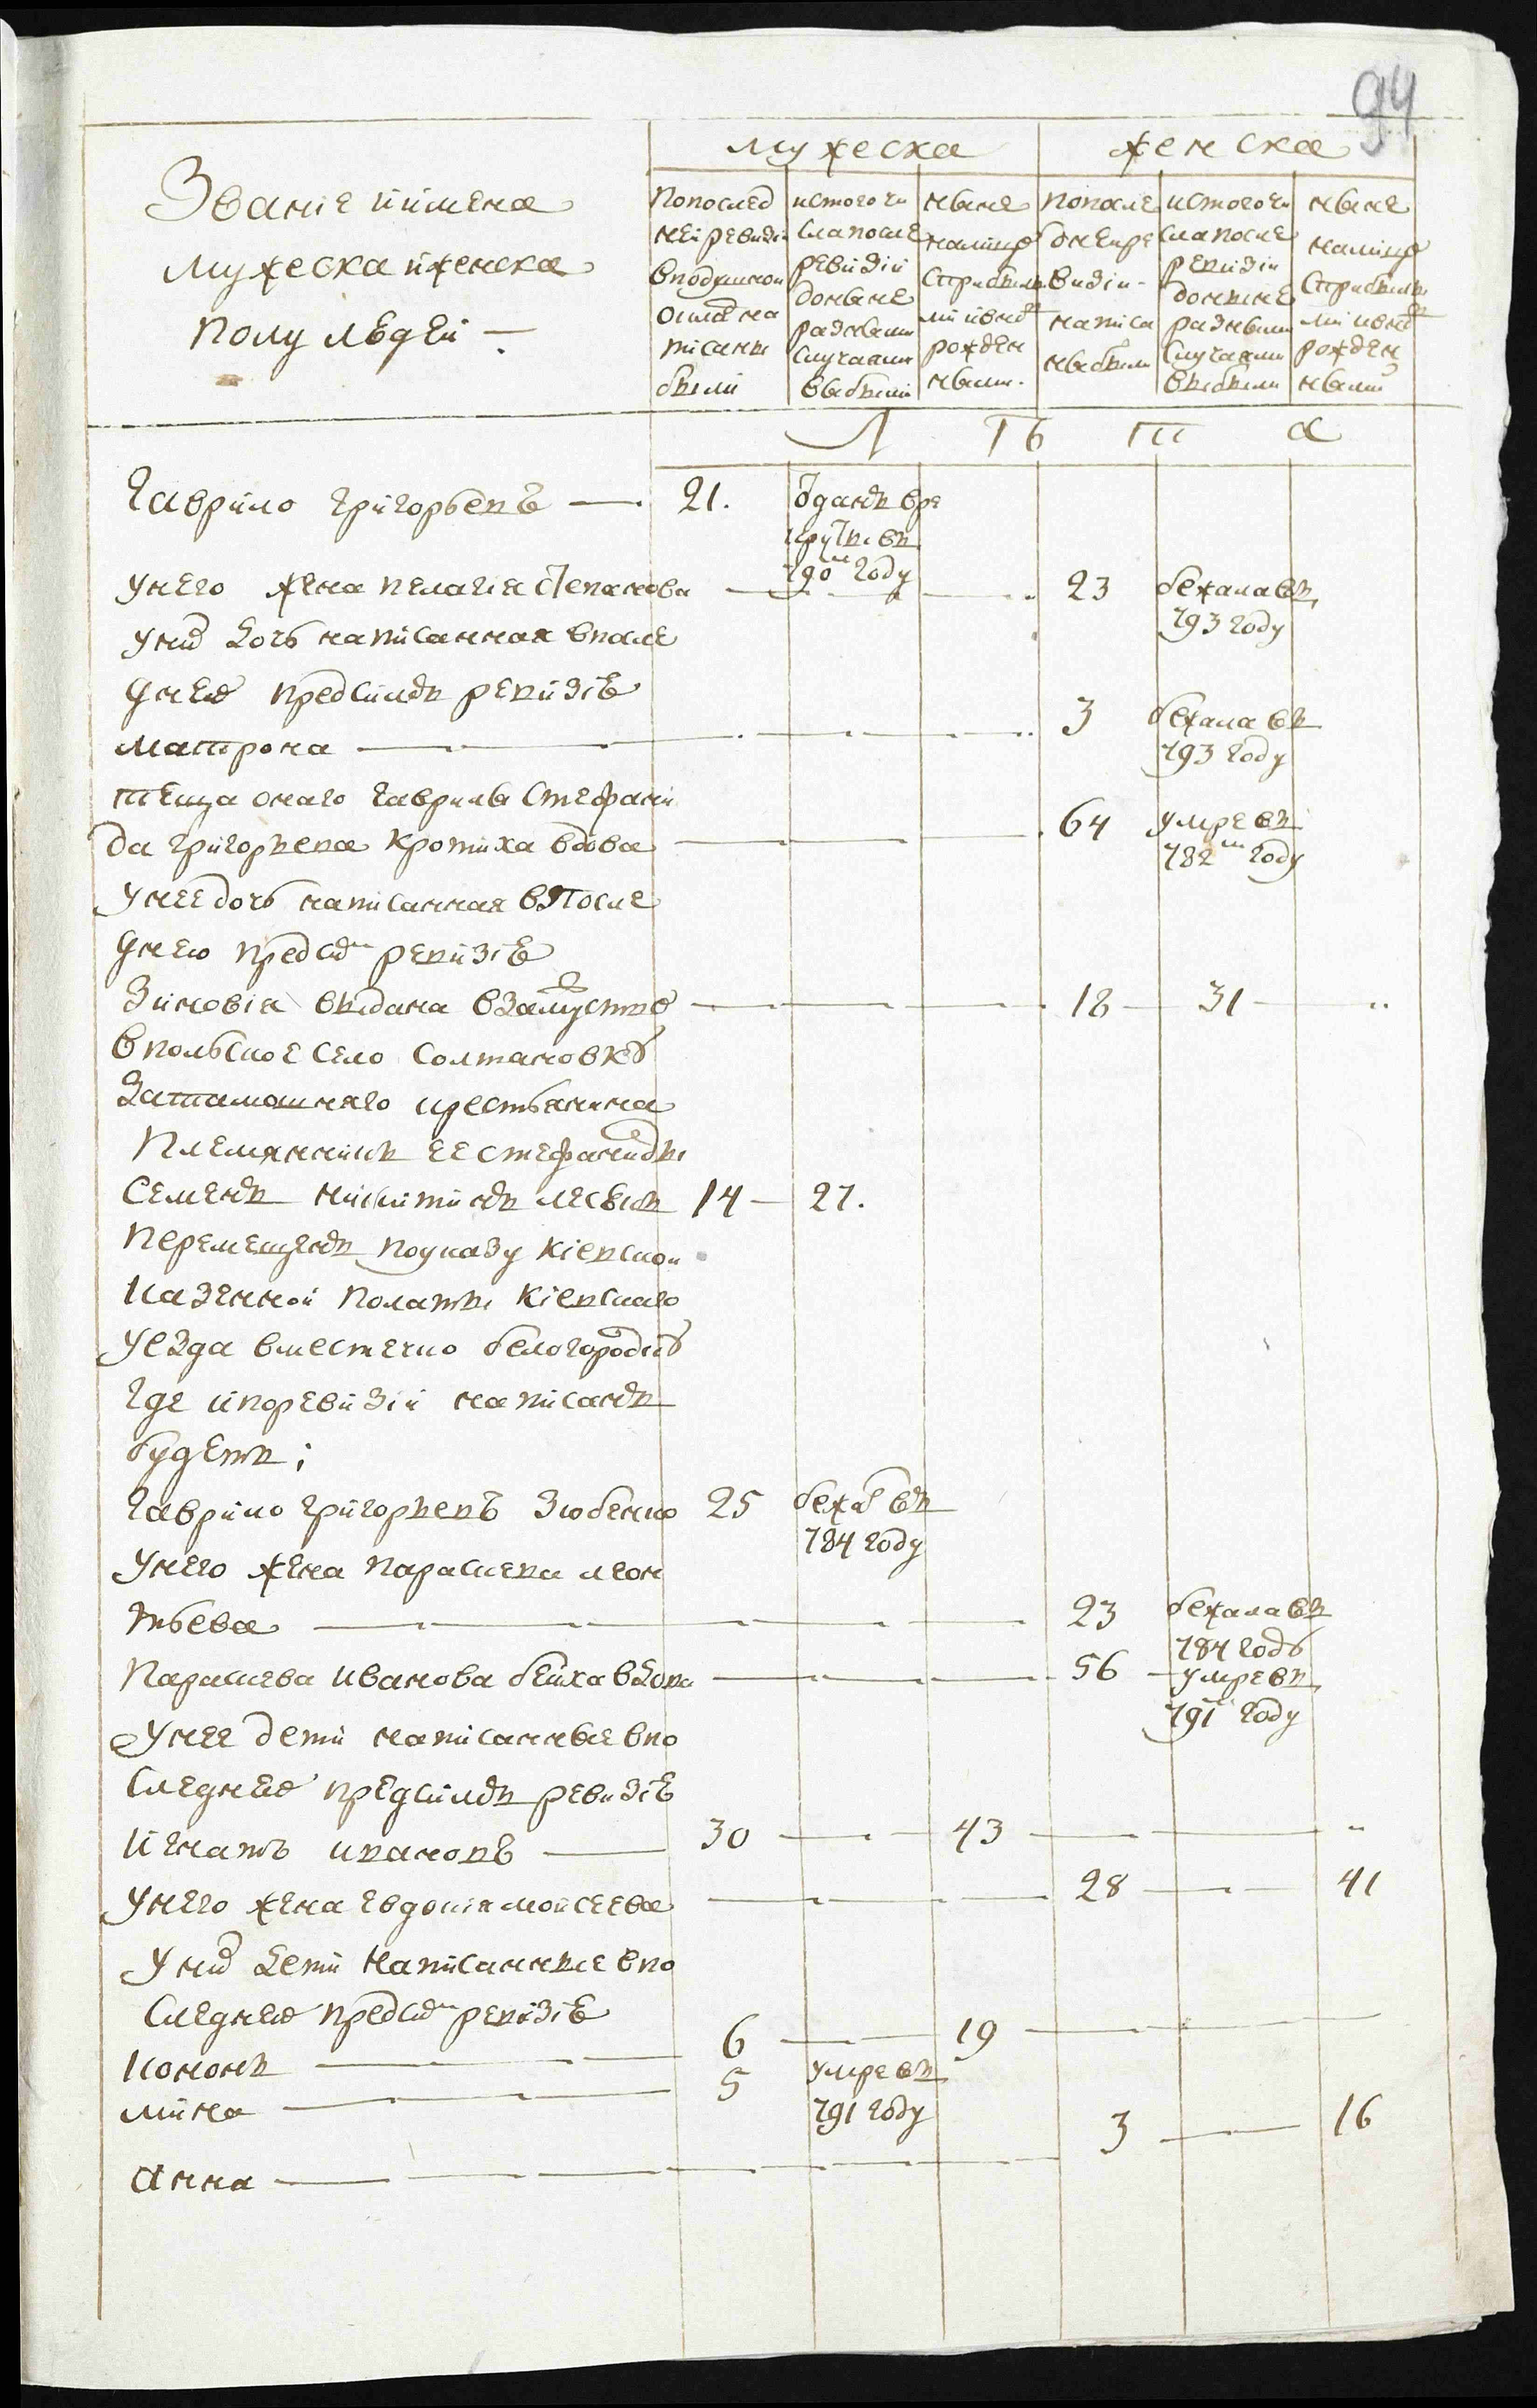 94
мужеска женска
Званіе и имена
мужеска и женска
полу людей
по послед
ней ревизіи
в подушной
оклад на
писаны
были
ис того чи
сла после
ревизіи
до ныне
разными
случаями
выбыли
ныне
налицо
с прибылы
ми и внов
рожден
ными
по после
дней ре
визіи
написа
ны были
ис того чи
сла после
ревизіи
до ныне
разными
случаями
выбыли
ныне
налицо
с прибылы
ми и внов
рожден
ными
Л Ѣ т а
Гаврило Григорьевъ 21. одан в ре
круты в
790м году
у него жена Пелагія Степанова 23 бежала в
793 году
у них дочь написанная в после
днею пред сим ревизіе
Матрона 3 бежала в
793 году
теща онаго Гаврилы Стефани
да Григорьева Кротиха вдова 64 умре в
782м году
у нее дочь написанная в после
днею пред сим ревизіе
Зиновія выдана в замуство 18 31
в польское село Солтановку
за тамошняго крестьянина
Племянник ее Стефаниды
Семен Никитин 14 27.
перемещен по указу Кіевской
казенной полаты Кіевскаго
уезда в местечко Белогородку
где и по ревизіи написан
будет;
Гаврило Григорьевъ Зюбенко 25 бежал в
784 году
у него жена Парасковя Леон
тьева 23 бежала в
784 году
Параскева Иванова вдова 56 умре в
791 году
у нее дети написанные в по
следнею пред сим ревизіе
Игнатъ Ивановъ 30 43
у него жена Евдокія Мойсеева 28 41
у них дети написанные в по
следнею пред сим ревизіе
Конон 6 19
Мина 5 умре в
791 году
Анна 3 16